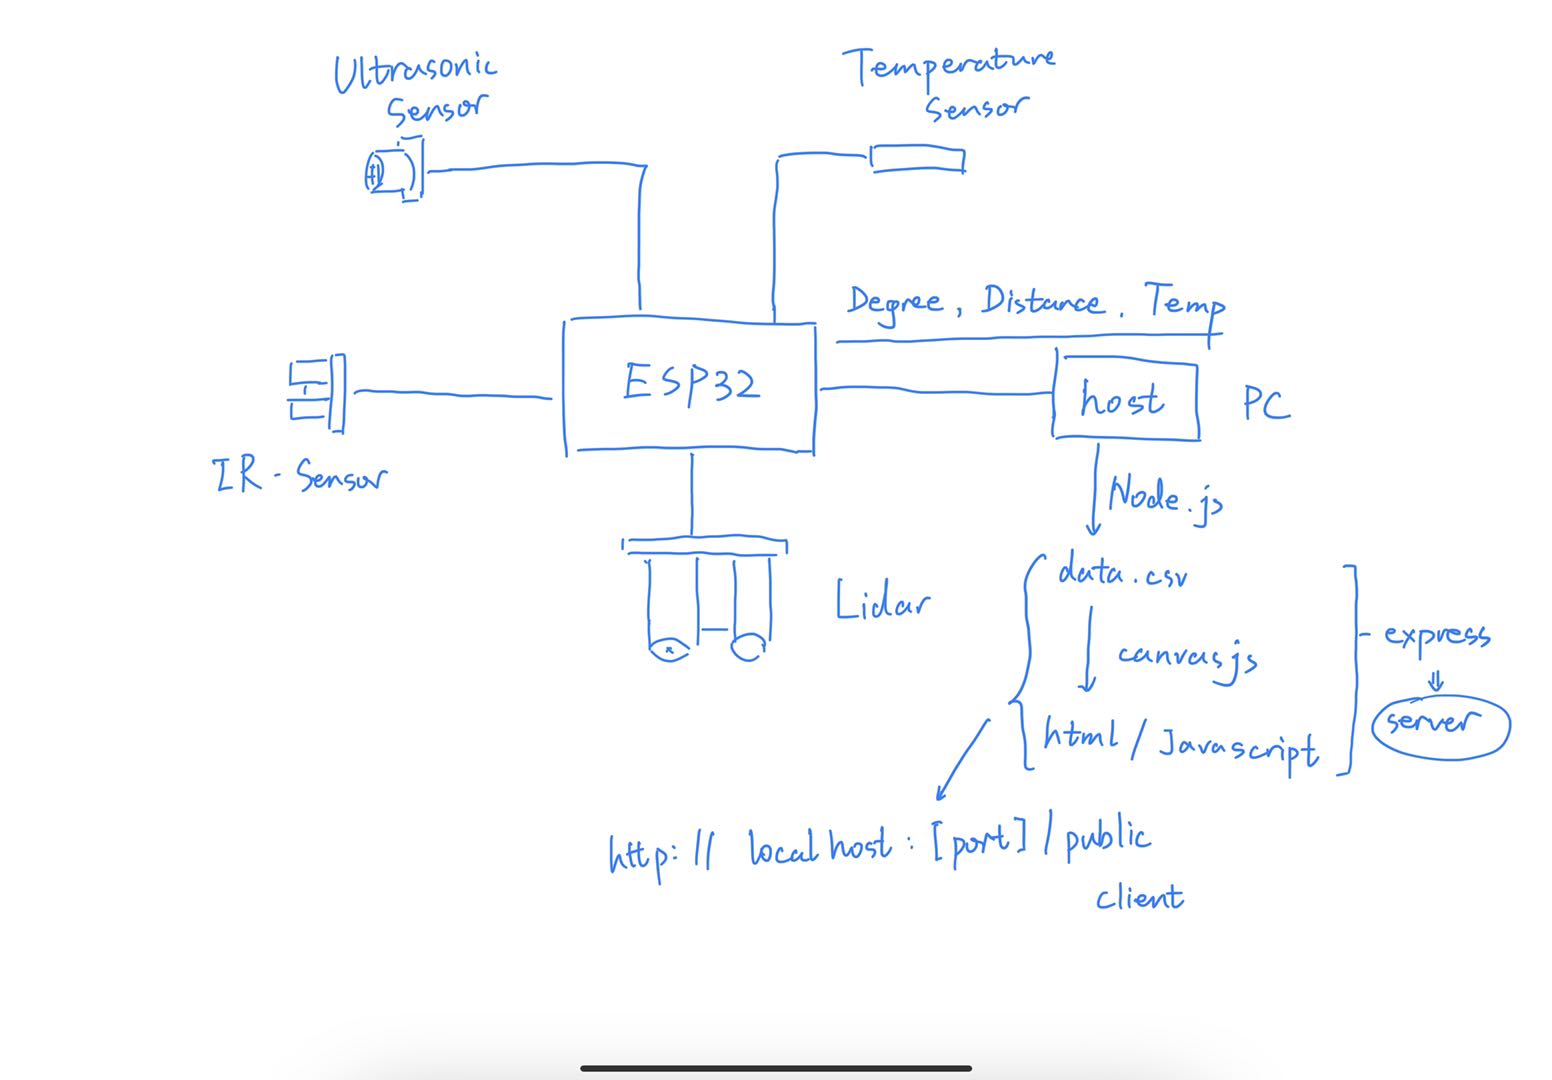 Ultrasonic
Sensor
Temperature
Sensor
Degree, Distance. Temp
ESP32
host
PC
IR - Sensor
Node.js
Lidar
data.csv
canvasjs
html / Javascript
express
server
http: // localhost : [port] / public
client